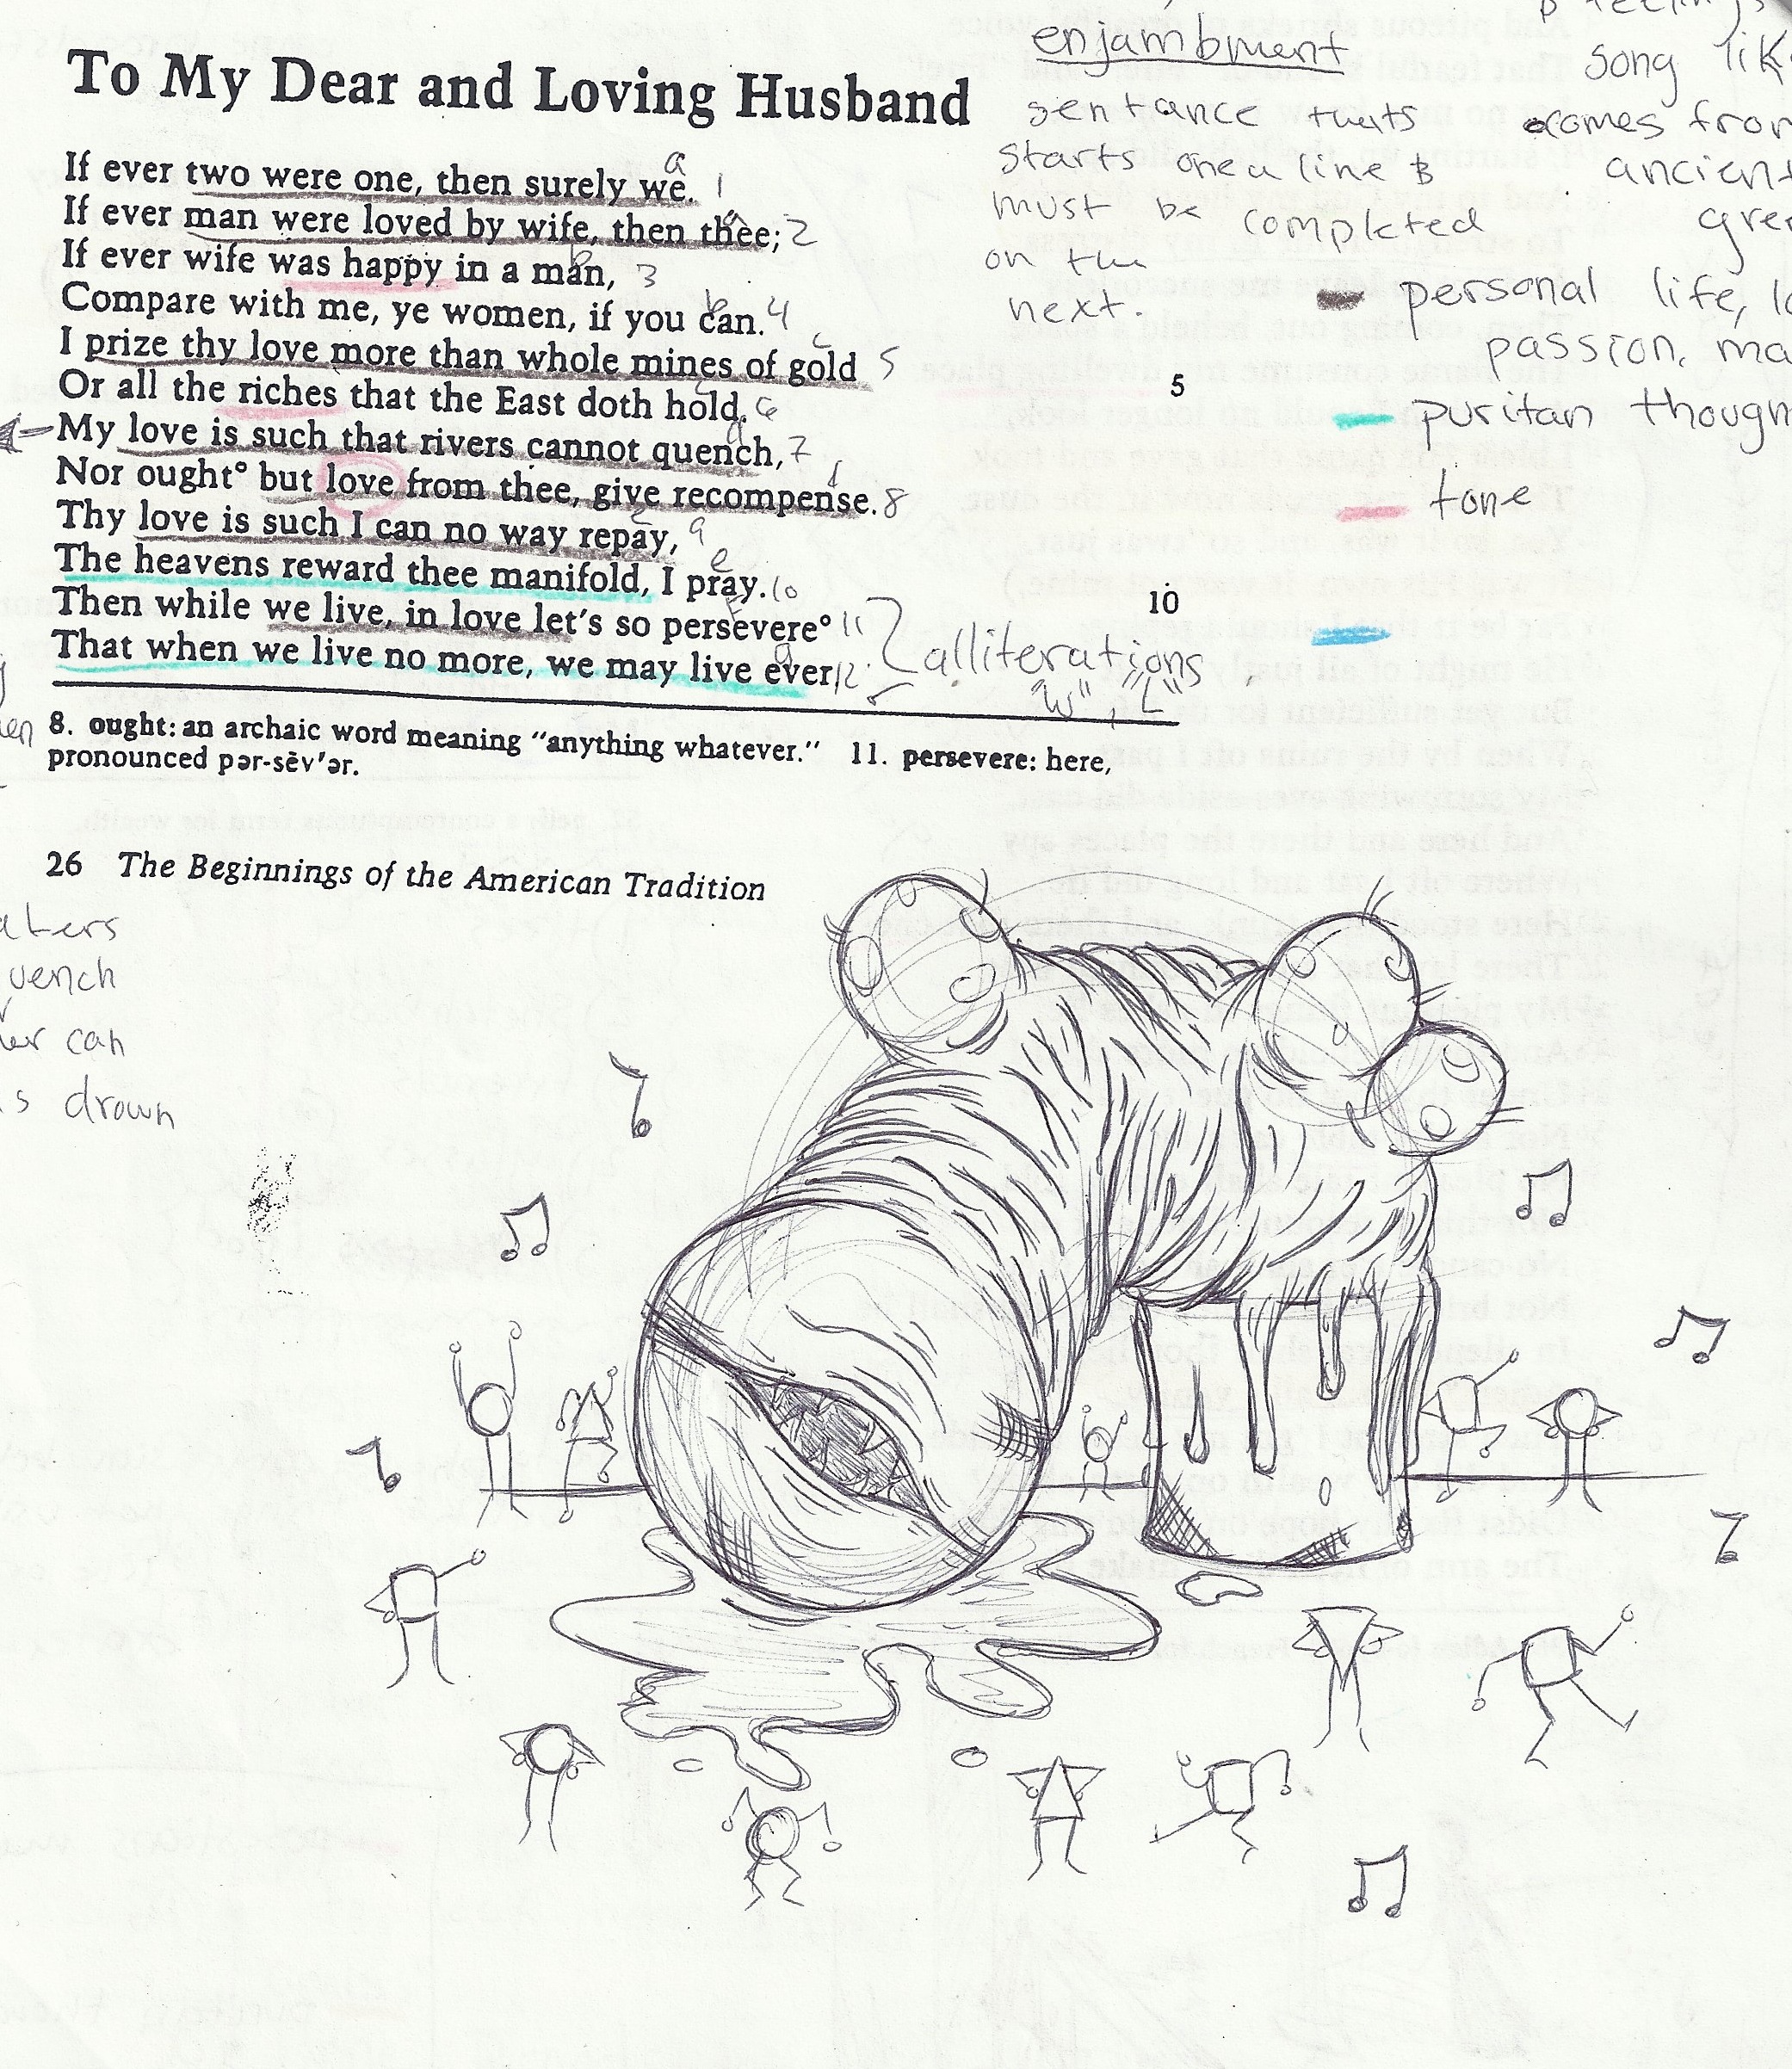 To My Dear and Loving Husband
If ever two were one, then surely we. a 1
If ever man were loved by wife, then thee; a 2
If ever wife was happy in a man, b 3
Compare with me, ye women, if you can. b 4
I prize thy love more than whole mines of gold c 5
5
Or all the riches that the East doth hold. c 6
My love is such that rivers cannot quench, d 7
Nor ought° but love from thee, give recompense. 8
Thy love is such I can no way repay, e 9
The heavens reward thee manifold, I pray. e 10
10
Then while we live, in love let's so persevere° 11
That when we live no more, we may live ever 12
8. ought: an archaic word meaning "anything whatever." 11. persevere: here,
pronounced pər-sĕv'ər.
26 The Beginnings of the American Tradition
enjambment
sentance thats
starts one a line &
must be completed
on the
next.
song
comes
ancient
personal life,
passion,
puritan
tone
alliterations
"W", "L"
can
drown